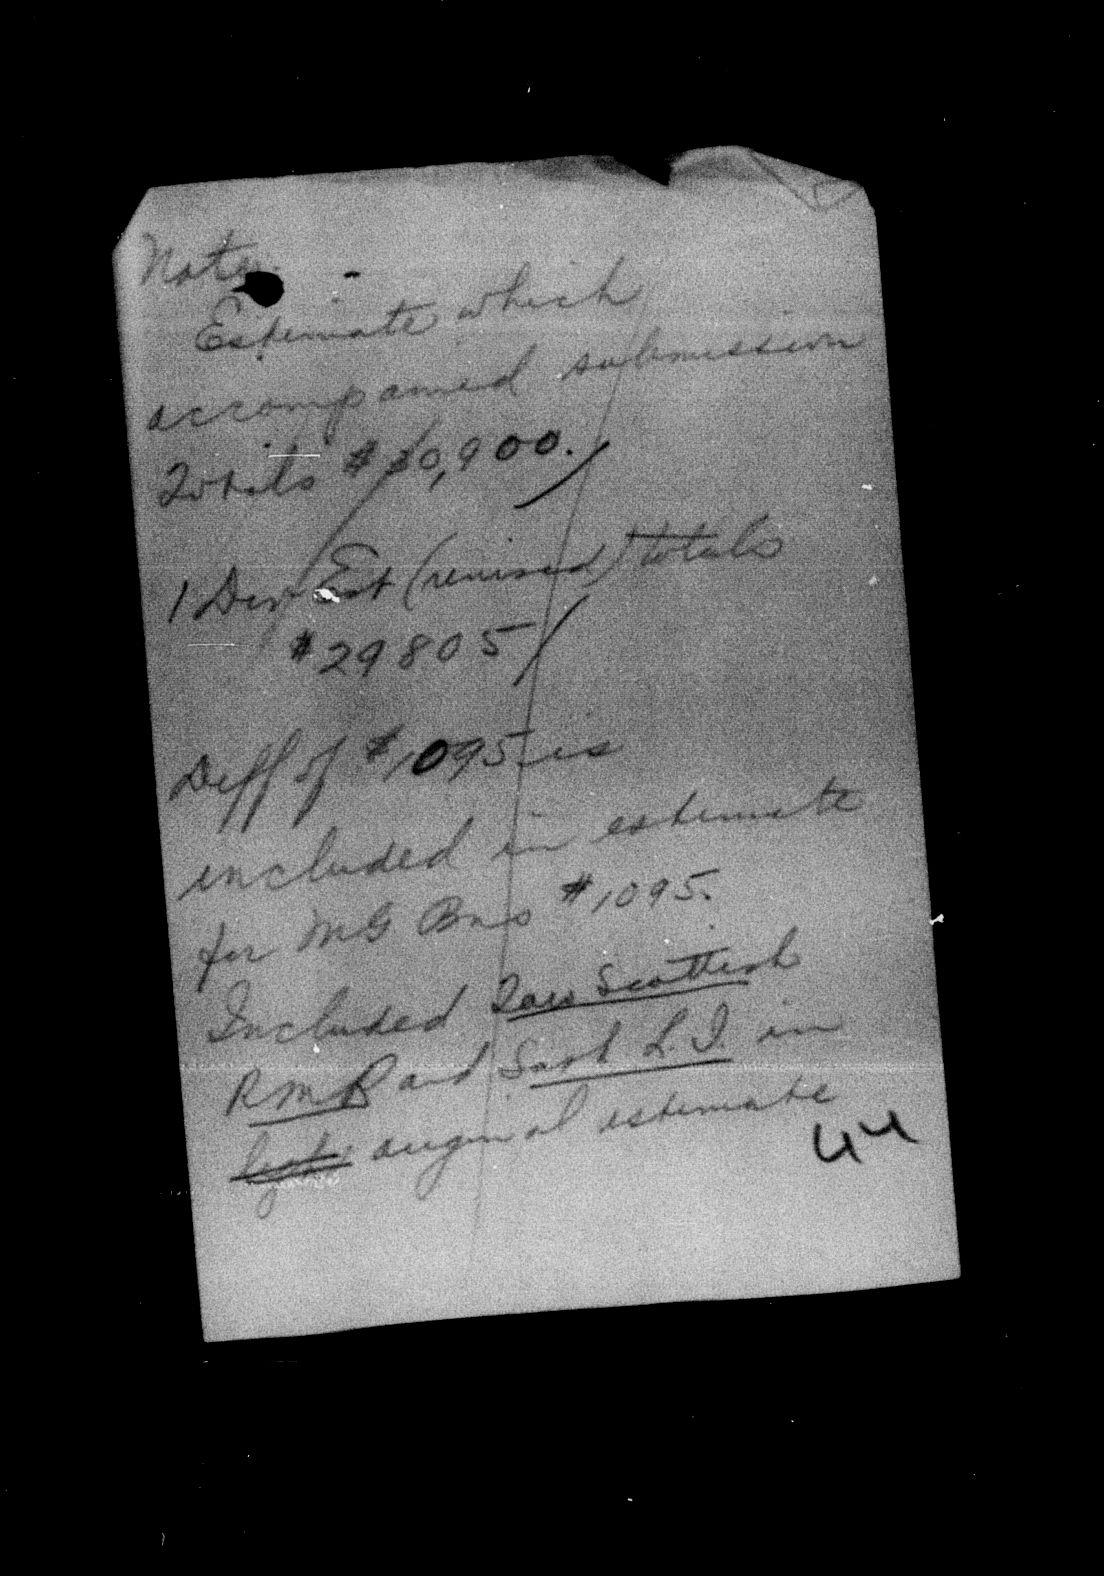 Note
Estimate which
accompanied submission
Totals $30,900.
1 Div Est (revised) totals
$29805
Diff of $1095 is
included in estimate
for MG Bns $1095.
Included Tor Scottish
RMR and Sask L.I. in
original estimate
44